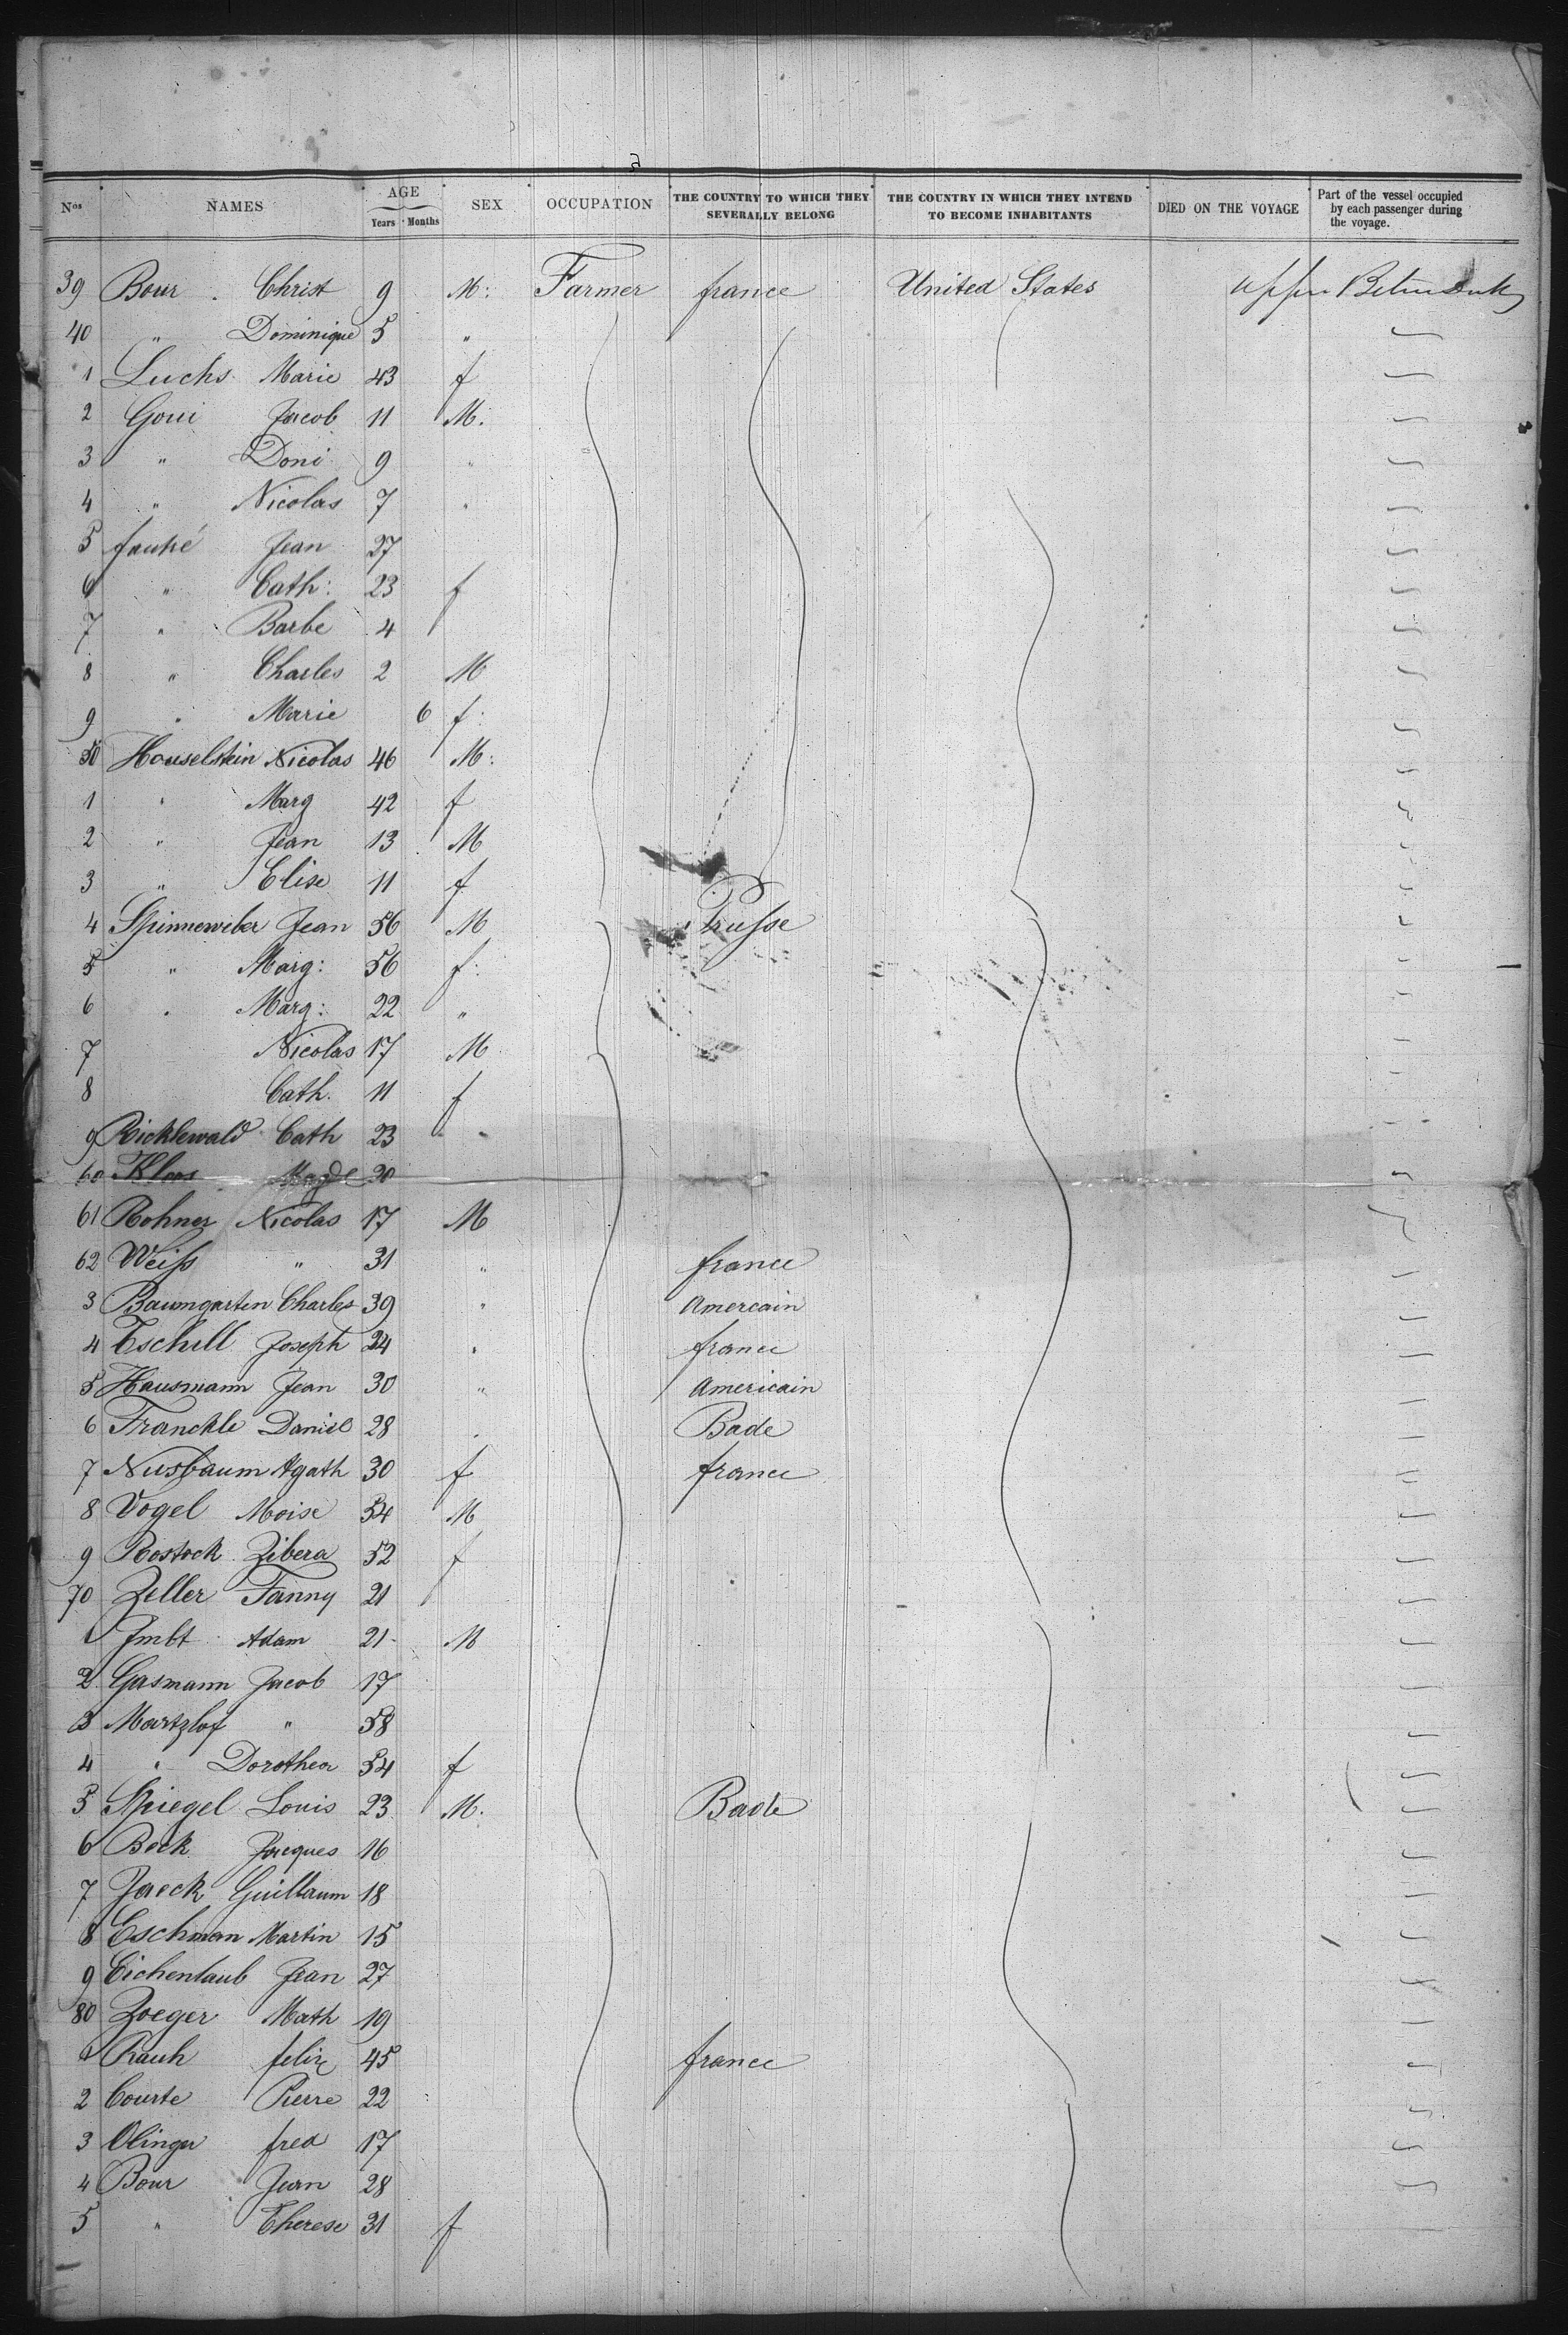 Nos NAMES AGE Years Months SEX OCCUPATION THE COUNTRY TO WHICH THEY SEVERALLY BELONG THE COUNTRY IN WHICH THEY INTEND TO BECOME INHABITANTS DIED ON THE VOYAGE Part of the vessel occupied by each passenger during the voyage.
39 Bour Christ 9 M: Farmer france United States upper
40 " Dominique 5 "
1 Luchs Marie 43 f
2 Goui Jacob 11 M:
3 " Doni 9 "
4 " Nicolas 7 "
5 Jean 27
6 " Cath: 23 f
7 " Barbe 4
8 " Charles 2 M
9 " Marie 6 f:
50 Houselstein Nicolas 46 M:
1 " Marg 42 f
2 " Jean 13 M
3 " Elise 11 f
4 Spinneweber Jean 56 M Prusse
5 " Marg: 56 f:
6 " Marg: 22 "
7 Nicolas 17 M
8 Cath. 11 f
9 Ricklewald Cath 23 "
60 Klos Magde 20
61 Rohner Nicolas 17 M
62 Weiss " 31 " france
3 Baumgarten Charles 39 " Amercain
4 Eschell Joseph 24 " france
5 Hausmann Jean 30 " Americain
6 Franckle Daniel 28 " Bade
7 Nusbaum Agath 30 f france
8 Vogel Moise 34 M
9 Rostock Zibera 52 f
70 Zeller Fanny 21
1 Jmbt Adam 21 M
2 Gasmann Jacob 17
3 Martzlof " 58
4 " Dorothea 54 f
5 Spiegel Louis 23 M: Bade
6 Beck Jacques 16
7 Jaeck Guillaum 18
8 Eschman Martin 15
9 Eichenlaub Jean 27
80 Zoeger Math 19
1 Rauh felix 45 france
2 Courte Pierre 22
3 Olinger fred 17
4 Bour Jean 28
5 " Therese 31 f